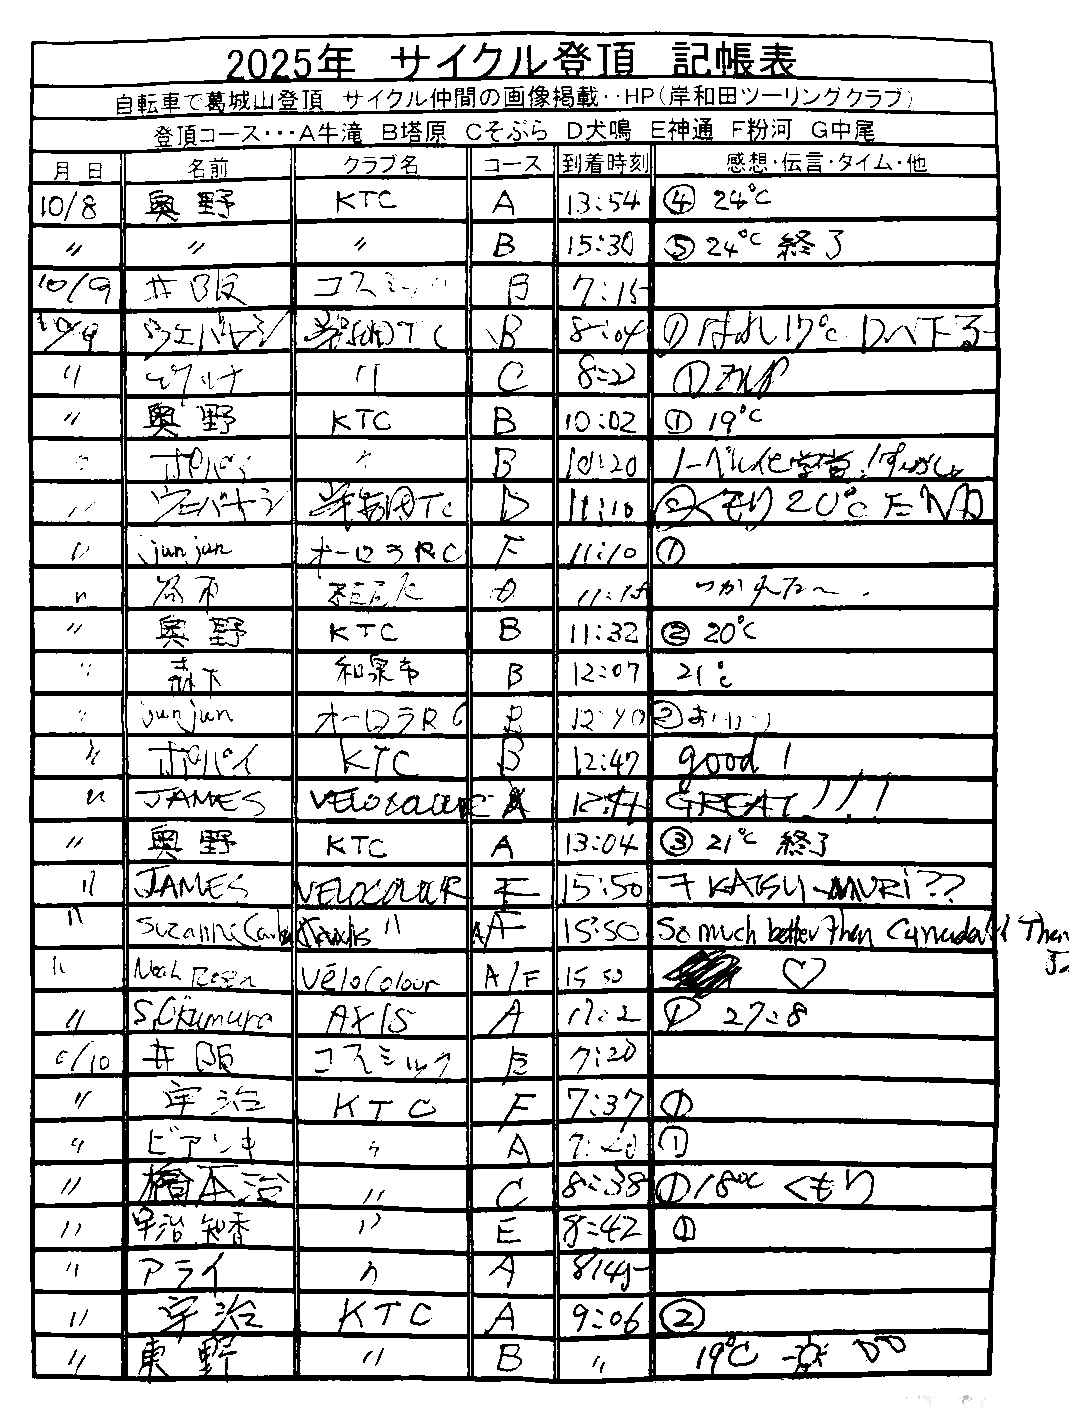 2025年 サイクル登頂 記帳表
自転車で葛城山登頂 サイクル仲間の画像掲載‥HP(岸和田ツーリングクラブ)
登頂コース･･･A牛滝 B塔原 Cそぶら D犬鳴 E神通 F粉河 G中尾
月 日 名前 クラブ名 コース 到着時刻 感想・伝言・タイム・他
10/8 奥野 KTC A 13:54 ④ 24℃
〃 〃 〃 B 15:30 ⑤ 24℃ 終了
10/9 井阪 コスミック B 7:15
10/9 ウエバヤシ 岸和田TC B 8:04 ① はれ 17℃ Dへ下る
〃 〃 C 8:22 ①
〃 奥野 KTC B 10:02 ① 19℃
〃 ポパイ 〃 B 10:20 ノーベル化学賞!
〃 ウエバヤシ 岸和田TC D 11:10 ② くもり 20℃
〃 junjun オーロラRC F 11:10 ①
〃 11:15 つかれた〜.
〃 奥野 KTC B 11:32 ② 20℃
〃 森下 和泉市 B 12:07 21℃
〃 junjun オーロラRC 12:40 ②
〃 ポパイ KTC B 12:47 good!
〃 JAMES VELOCOLOUR A GREAT!!!
〃 奥野 KTC A 13:04 ③ 21℃ 終了
〃 JAMES VELOCOLOUR F 15:50 KATSU-MURI??
〃 Suzanne 〃 A/F 15:50 So much better than Canada!!
〃 Noah Rosen VéloColour A/F 15:50 ♡
〃 S.Okumura AXIS A ① 27:8
10/10 井阪 コスミック E 7:20
〃 宇治 KTC F 7:37 ①
〃 ビアンキ 〃 A ①
〃 橋本治 〃 C 8:38 ① 18℃ くもり
〃 宇治 知香 〃 E 8:42 ①
〃 アライ 〃 A 8:45
〃 宇治 KTC A 9:06 ②
〃 東野 〃 B 〃 19℃